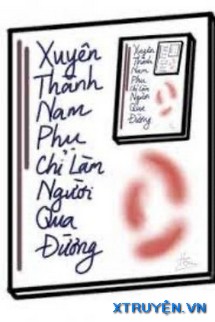 Xuyên
Thành
Nam
Phụ
Chỉ Làm
Người
Qua
Đường
Xuyên
Thành
Nam
Phụ
Chỉ Làm
Người
Qua
Đường
XTRUYỆN.VN